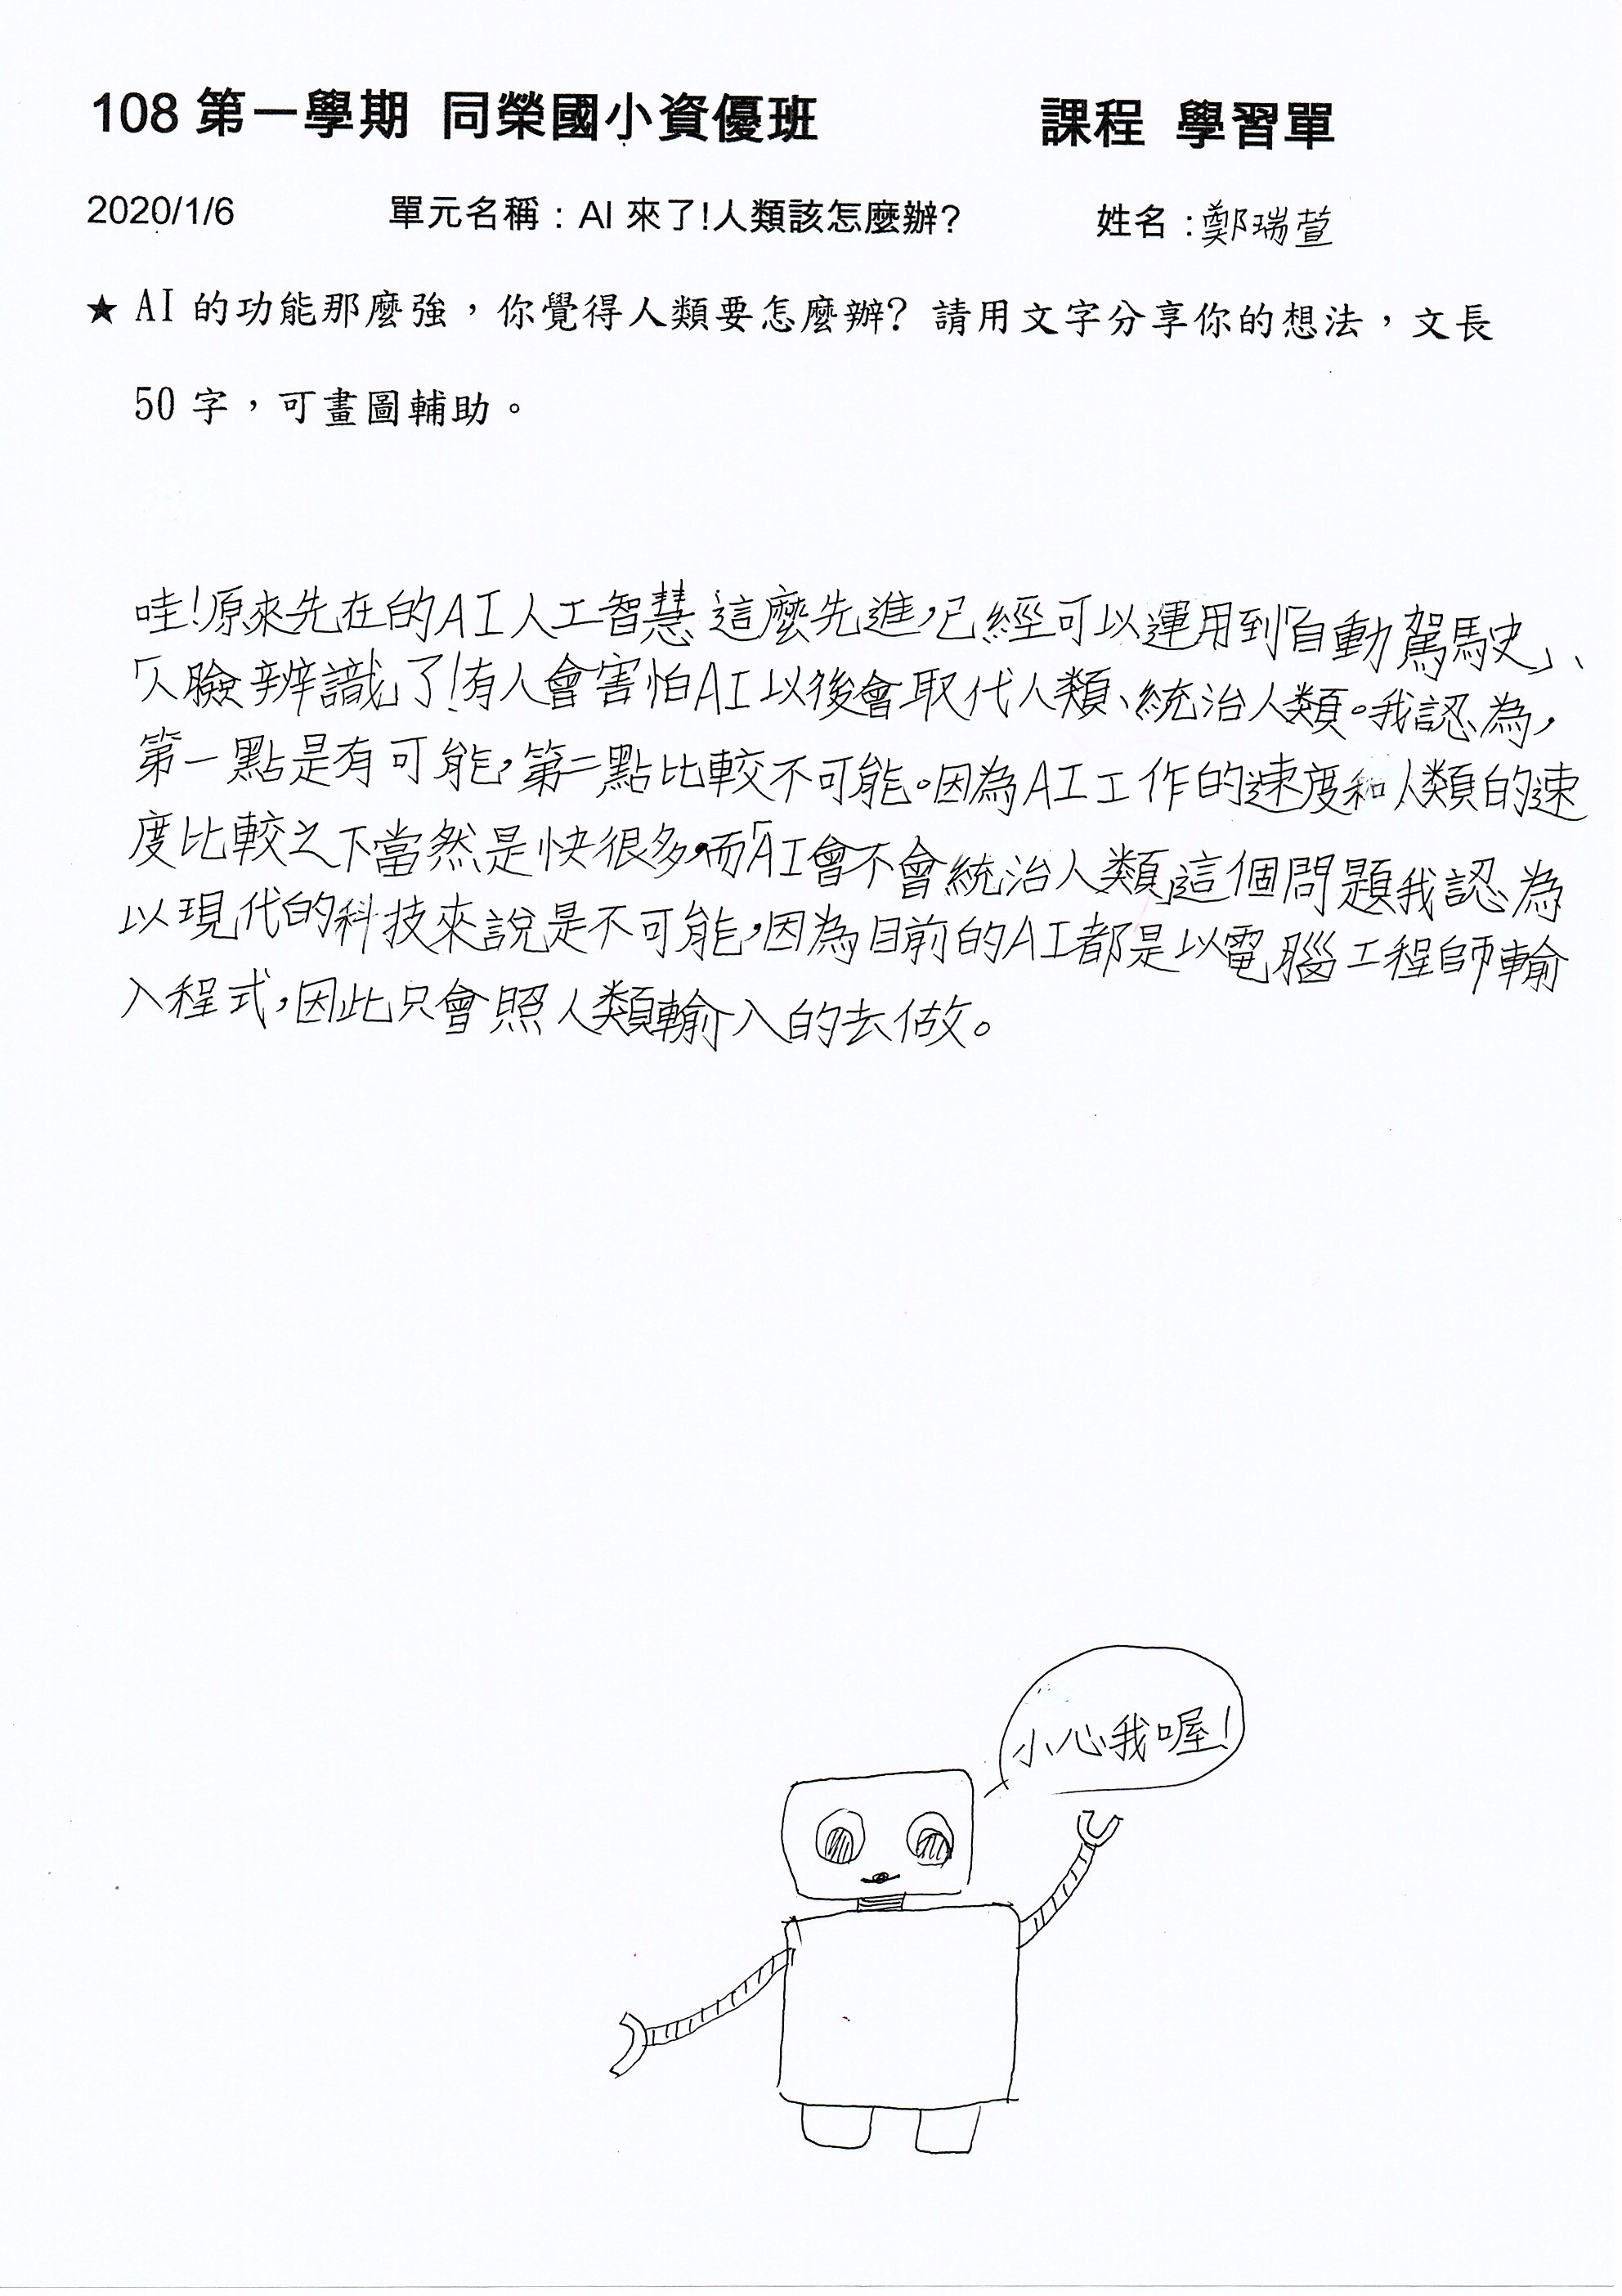 108 第一學期 同榮國小資優班 課程 學習單
2020/1/6 單元名稱：AI 來了!人類該怎麼辦? 姓名：鄭瑞萱
★ AI 的功能那麼強，你覺得人類要怎麼辦? 請用文字分享你的想法，文長
50 字，可畫圖輔助。
哇!原來先在的AI人工智慧這麼先進,已經可以運用到「自動駕駛」、
「人臉辨識」了!有人會害怕AI以後會取代人類、統治人類。我認為,
第一點是有可能,第二點比較不可能。因為AI工作的速度和人類的速
度比較之下當然是快很多,而「AI會不會統治人類」這個問題我認為
以現代的科技來說是不可能,因為目前的AI都是以電腦工程師輸
入程式,因此只會照人類輸入的去做。
小心我喔!